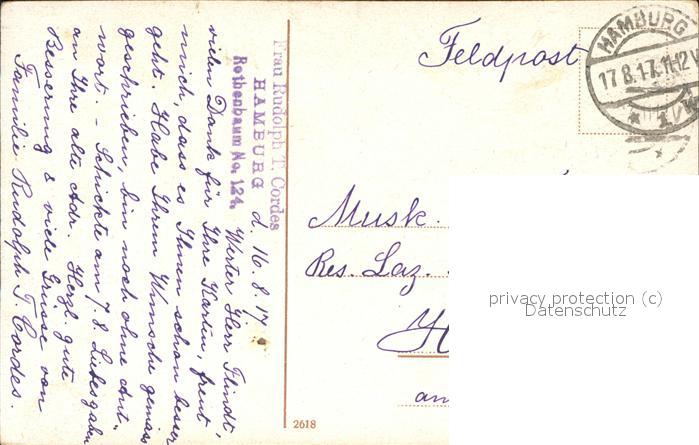 Frau Rudolph T. Cordes
HAMBURG
Rothenbaum No. 124.
d. 16.8.17.
Werter Herr Flindt,
vielen Dank für Ihre Karten, freut
mich, dass es Ihnen schon besser
geht. Habe Ihrem Wunsche gemäss
geschrieben, bin noch ohne Ant-
wort. - Schickte am 7.8. Liebesgaben
an Ihre alte Adr. Herzl. gute
Besserung & viele Grüsse von
Familie Rudolph T. Cordes.
Feldpost
HAMBURG
17.8.17.11-12V
* 1
Musk.
Res. Laz.
H
an
privacy protection (c)
Datenschutz
2618